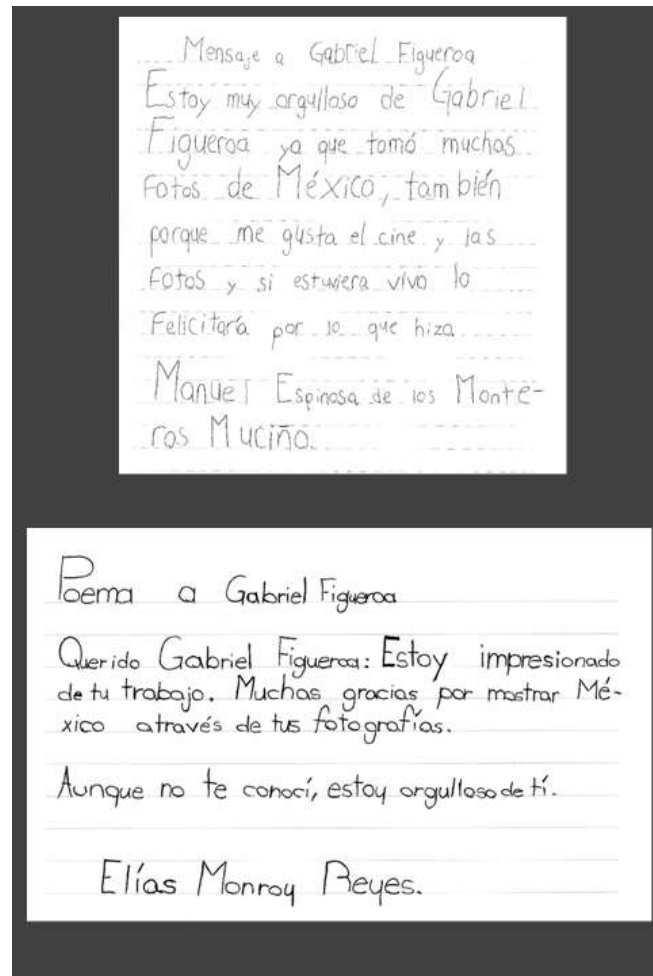 Mensaje a Gabriel Figueroa
Estoy muy orgulloso de Gabriel
Figueroa ya que tomó muchas
Fotos de México, también
porque me gusta el cine y las
Fotos y si estuviera vivo lo
Felicitaría por lo que hizo.
Manuel Espinosa de los Monte-
ros Muciño.
Poema a Gabriel Figueroa
Querido Gabriel Figueroa: Estoy impresionado
de tu trabajo. Muchas gracias por mostrar Mé-
xico através de tus fotografías.
Aunque no te conocí, estoy orgulloso de tí.
Elías Monroy Reyes.